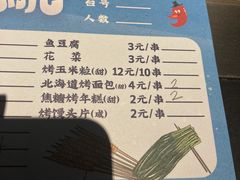 台号
人数
鱼豆腐 3元/串
花菜 3元/串
烤玉米粒(甜) 12元/10串
北海道烤面包(甜) 4元/串 2
焦糖烤年糕(甜) 2元/串 2
烤馒头片(咸) 2元/串